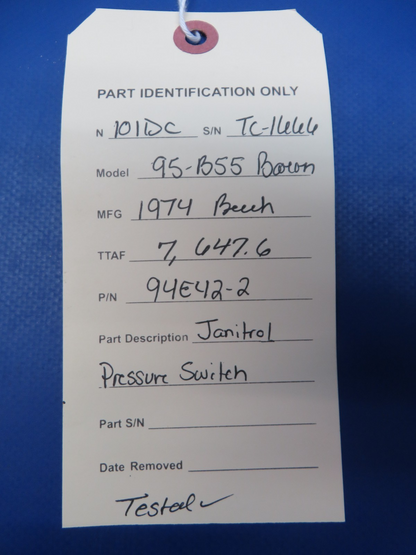 PART IDENTIFICATION ONLY
N 101DC S/N TC-1666
Model 95-B55 Baron
MFG 1974 Beech
TTAF 7,647.6
P/N 94E42-2
Part Description Janitrol
Pressure Switch
Part S/N
Date Removed
Tested ✓